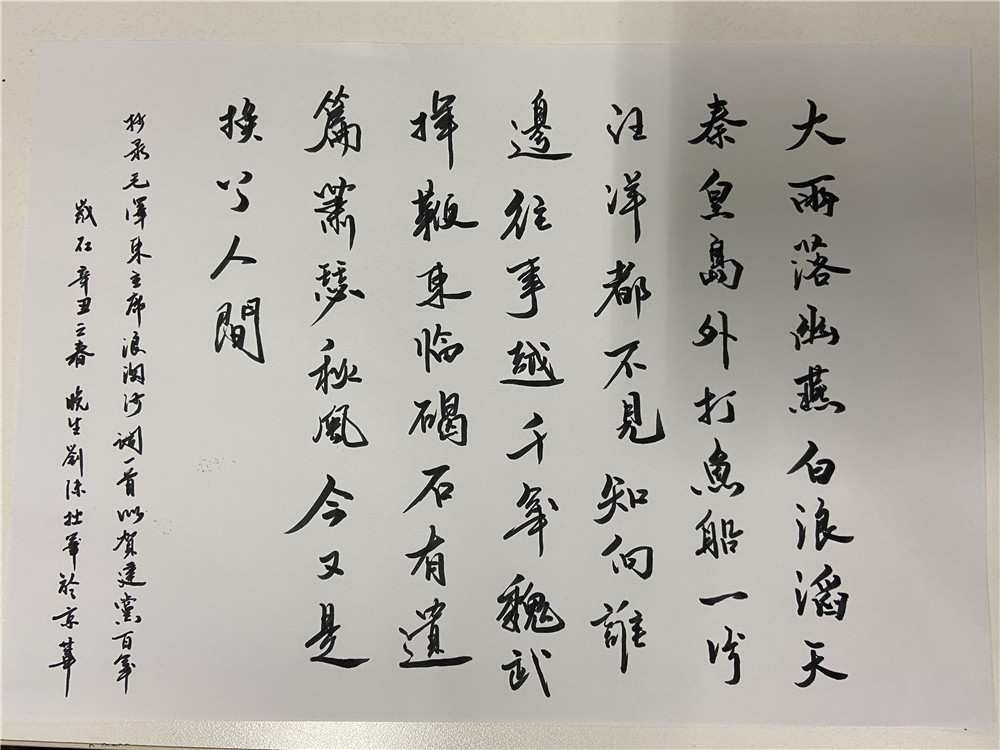 大雨落幽燕白浪滔天
秦皇島外打魚船一片
汪洋都不見知向誰
邊往事越千年魏武
揮鞭東臨碣石有遺
篇蕭瑟秋風今又是
換了人間
抄录毛澤東主席浪淘沙詞一首以賀建黨百年
歲在辛丑之春晚生劉沫拙筆於京華